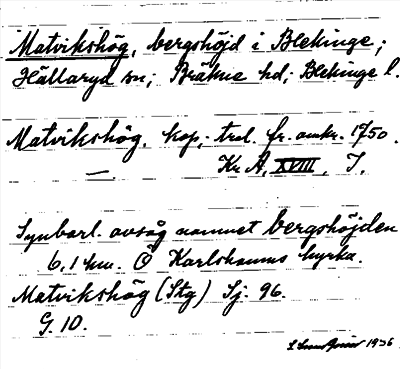 Matvikshög, bergshöjd i Blekinge;
Hällaryd sn; Bräkne hd; Blekinge l.
Matvikshög, kop. trol. fr. omkr. 1750.
— Kr A, XVIII, I,
Synbarl. avsåg namnet bergshöjden
6,1 km. Ö Karlshamns kyrka.
Matvikshög (Stg) Sj. 96.
G. 10.
1936